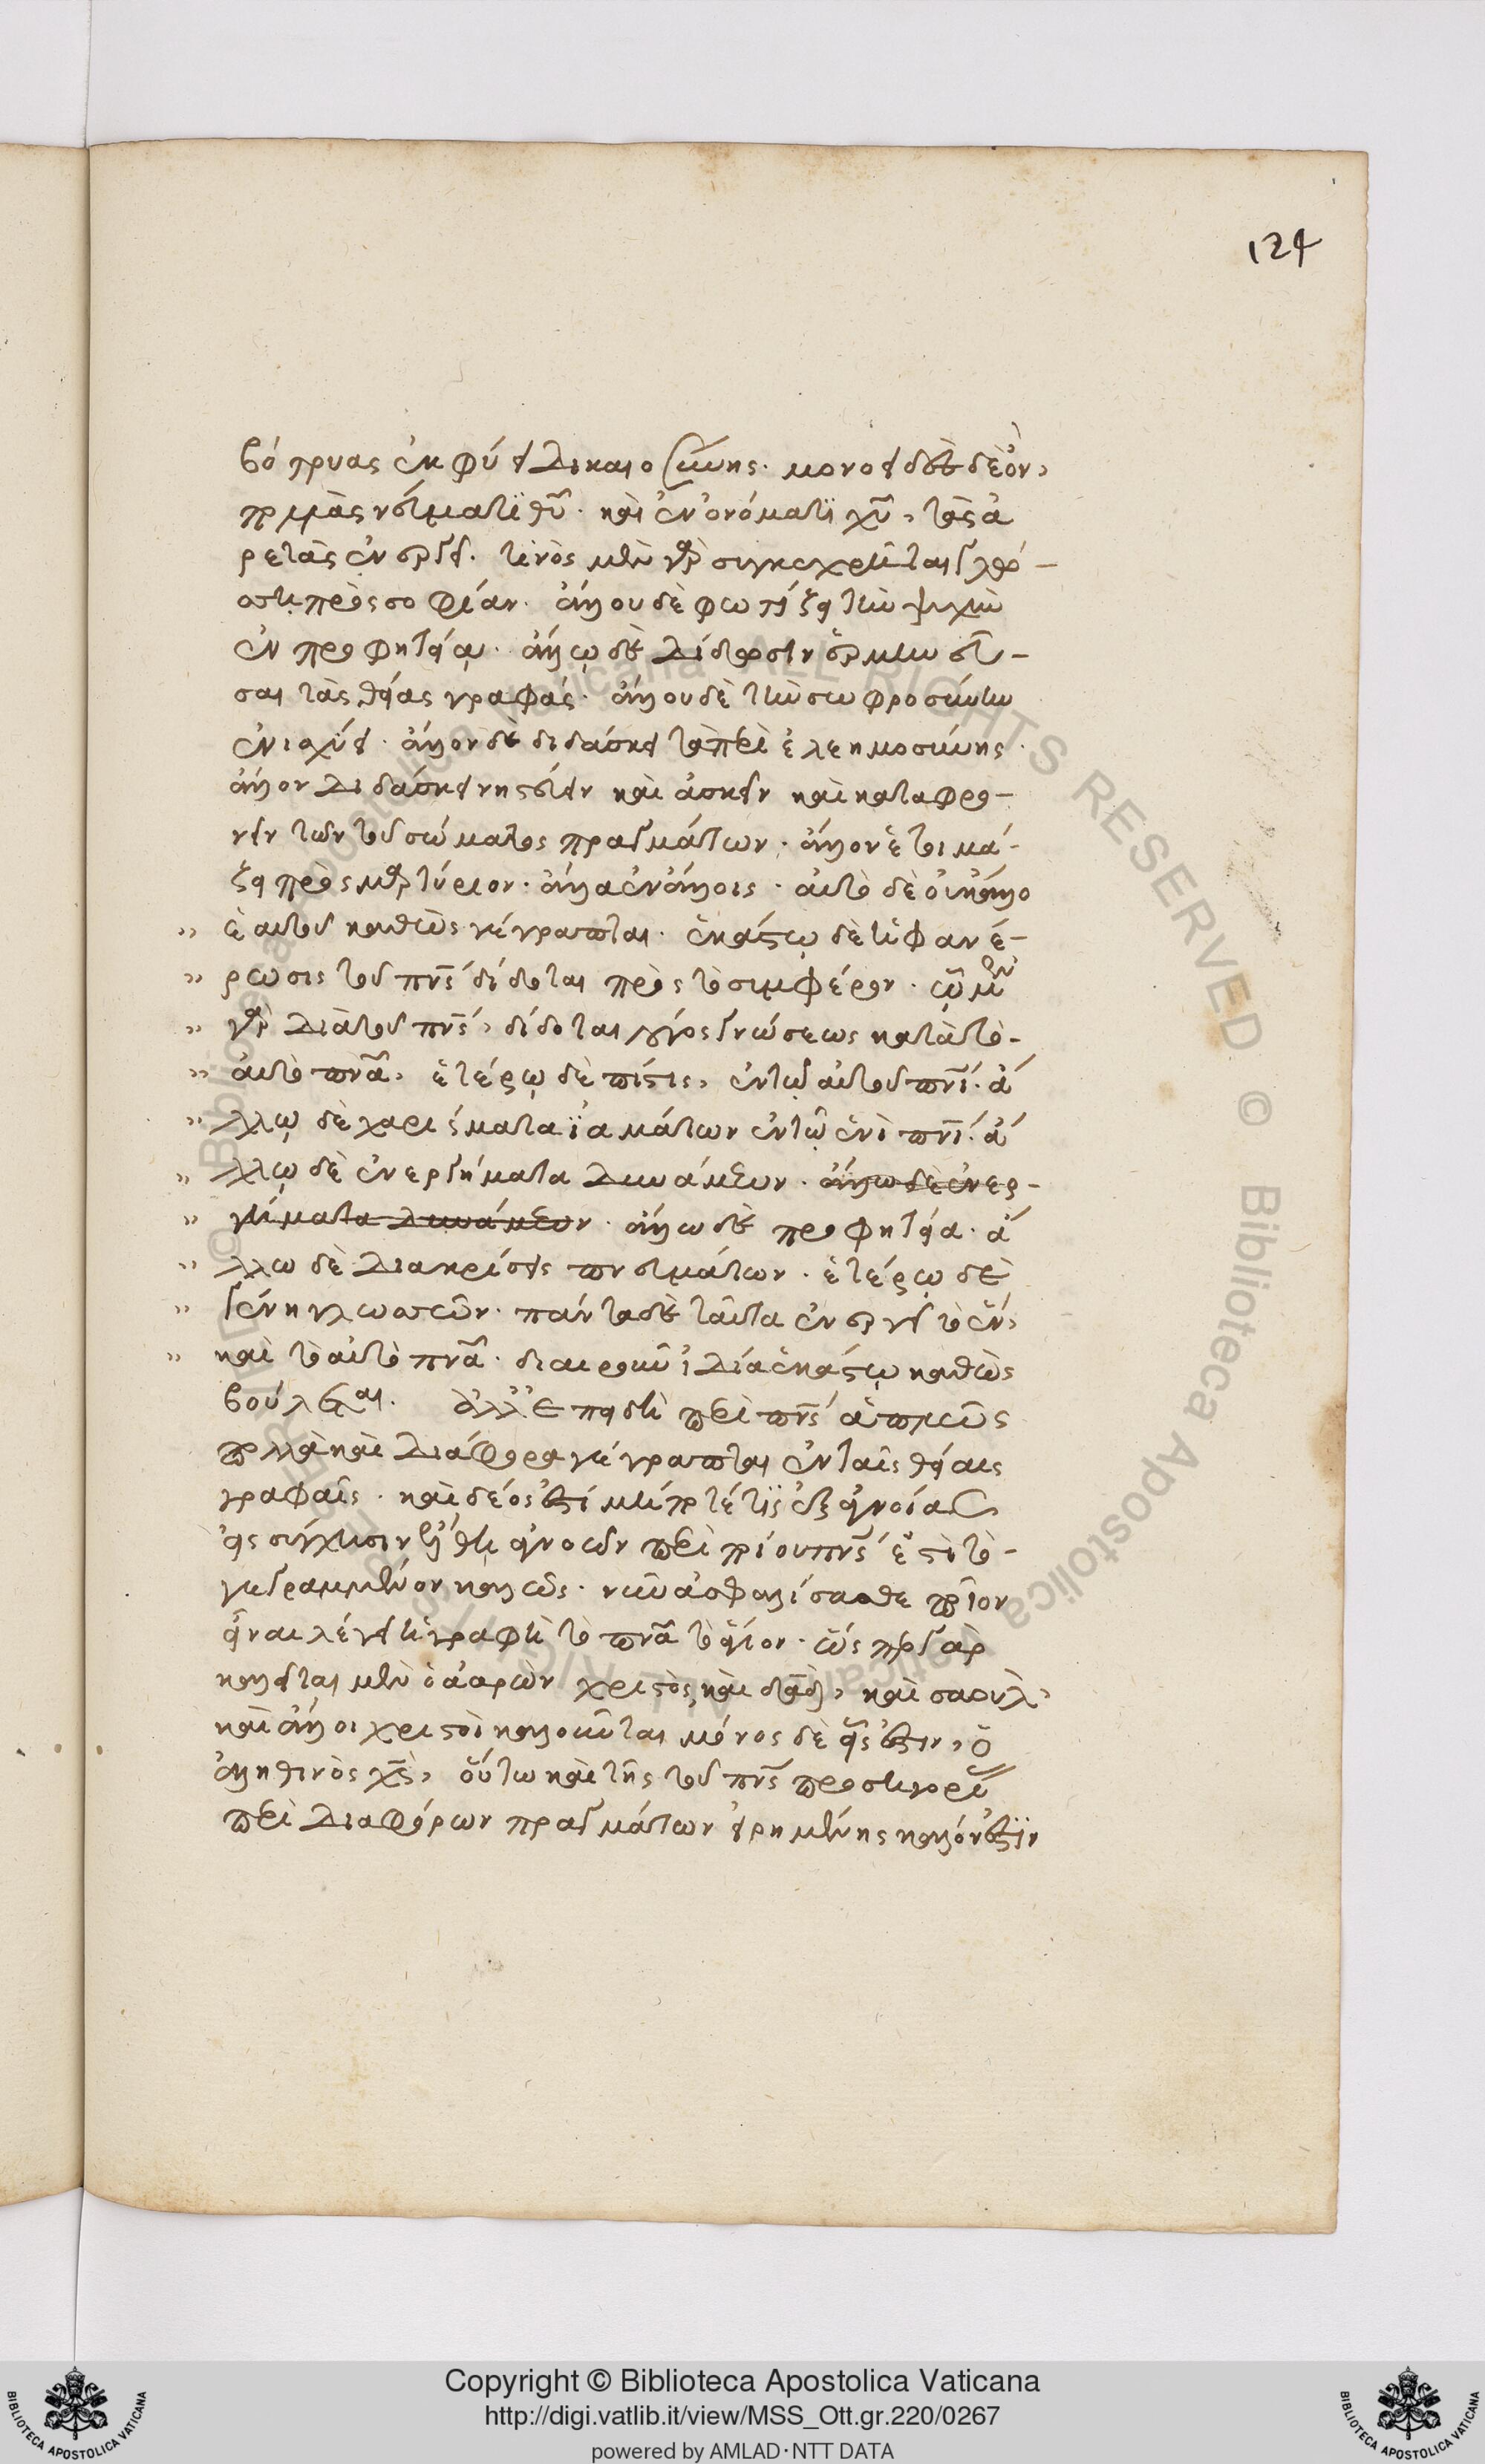 124
βότρυας ἐκφύει δικαιοσύνης. μονοειδὲς δὲ ὂν,
πολλὰς νεύματι θῡ. καὶ ἐν ὀνόματι χῡ, τὰς ἀ
ρετὰς ἐνεργεῖ. τινὸς μὲν γὰρ συγκέχρηται γλώ-
σσῃ πρὸς σοφίαν. ἄλλου δὲ φωτίζει τὴν ψυχὴν
ἐν προφητείᾳ. ἄλλῳ δὲ δίδωσιν ἑρμηνεῦ-
σαι τὰς θείας γραφάς. ἄλλου δὲ τὴν σωφροσύνην
ἐνισχύει. ἄλλον δὲ διδάσκει τὰ περὶ ἐλεημοσύνης.
ἄλλον διδάσκει νηστεύειν καὶ ἀσκεῖν καὶ καταφρο-
νεῖν τῶν τοῦ σώματος πραγμάτων. ἄλλον ἑτοιμά-
ζει πρὸς μαρτύριον. ἄλλα ἐν ἄλλοις. αὐτὸ δὲ οὐκ ἄλλο
" ἑαυτοῦ καθὼς γέγραπται. ἑκάστῳ δὲ ἡ φανέ-
" ρωσις τοῦ πνς δίδοται πρὸς τὸ συμφέρον. ᾧ μὲν
" γὰρ διὰ τοῦ πνς, δίδοται λόγος γνώσεως κατὰ τὸ-
" αὐτὸ πνα, ἑτέρῳ δὲ πίστις, ἐν τῷ αὐτοῦ πνι. ἄ
" λλῳ δὲ χαρίσματα ἰαμάτων ἐν τῷ ἑνὶ πνι. ἄ
" λλῳ δὲ ἐνεργήματα δυνάμεων. ἄλλῳ δὲ ἐνερ-
" γήματα δυνάμεων. ἄλλῳ δὲ προφητεία. ἄ
" λλῳ δὲ διακρίσεις πνευμάτων. ἑτέρῳ δὲ
" γένη γλωσσῶν. πάντα δὲ ταῦτα ἐνεργεῖ τὸ ἓν,
" καὶ τὸ αὐτὸ πνα. διαιροῦν ἰδίᾳ ἑκάστῳ καθὼς
βούλεται. ἀλλ' ἐπειδὴ περὶ πνς ἁπλῶς
πολλὰ καὶ διάφορα γέγραπται ἐν ταῖς θείαις
γραφαῖς. καὶ δέος ἐστὶ μήποτέ τις ἐξ ἀγνοίας
εἰς σύγχυσιν ἔλθῃ ἀγνοῶν περὶ ποίου πνς ἐστὶ τὸ-
γεγραμμένον καλῶς. νῦν ἀσφαλίσασθε ποῖον
εἶναι λέγει ἡ γραφὴ τὸ πνα τὸ ἅγιον. ὥσπερ γὰρ
καλεῖται μὲν ὁ ἀαρὼν χριστὸς, καὶ δαδ, καὶ σαουλ,
καὶ ἄλλοι χριστοὶ καλοῦνται μόνος δὲ εἷς ἐστιν, ὁ
ἀληθινὸς χς, οὕτω καὶ τῆς τοῦ πνς προσηγορί
περὶ διαφόρων πραγμάτων εἰρημένης καλόν ἐστιν
Copyright © Biblioteca Apostolica Vaticana
http://digi.vatlib.it/view/MSS_Ott.gr.220/0267
powered by AMLAD·NTT DATA